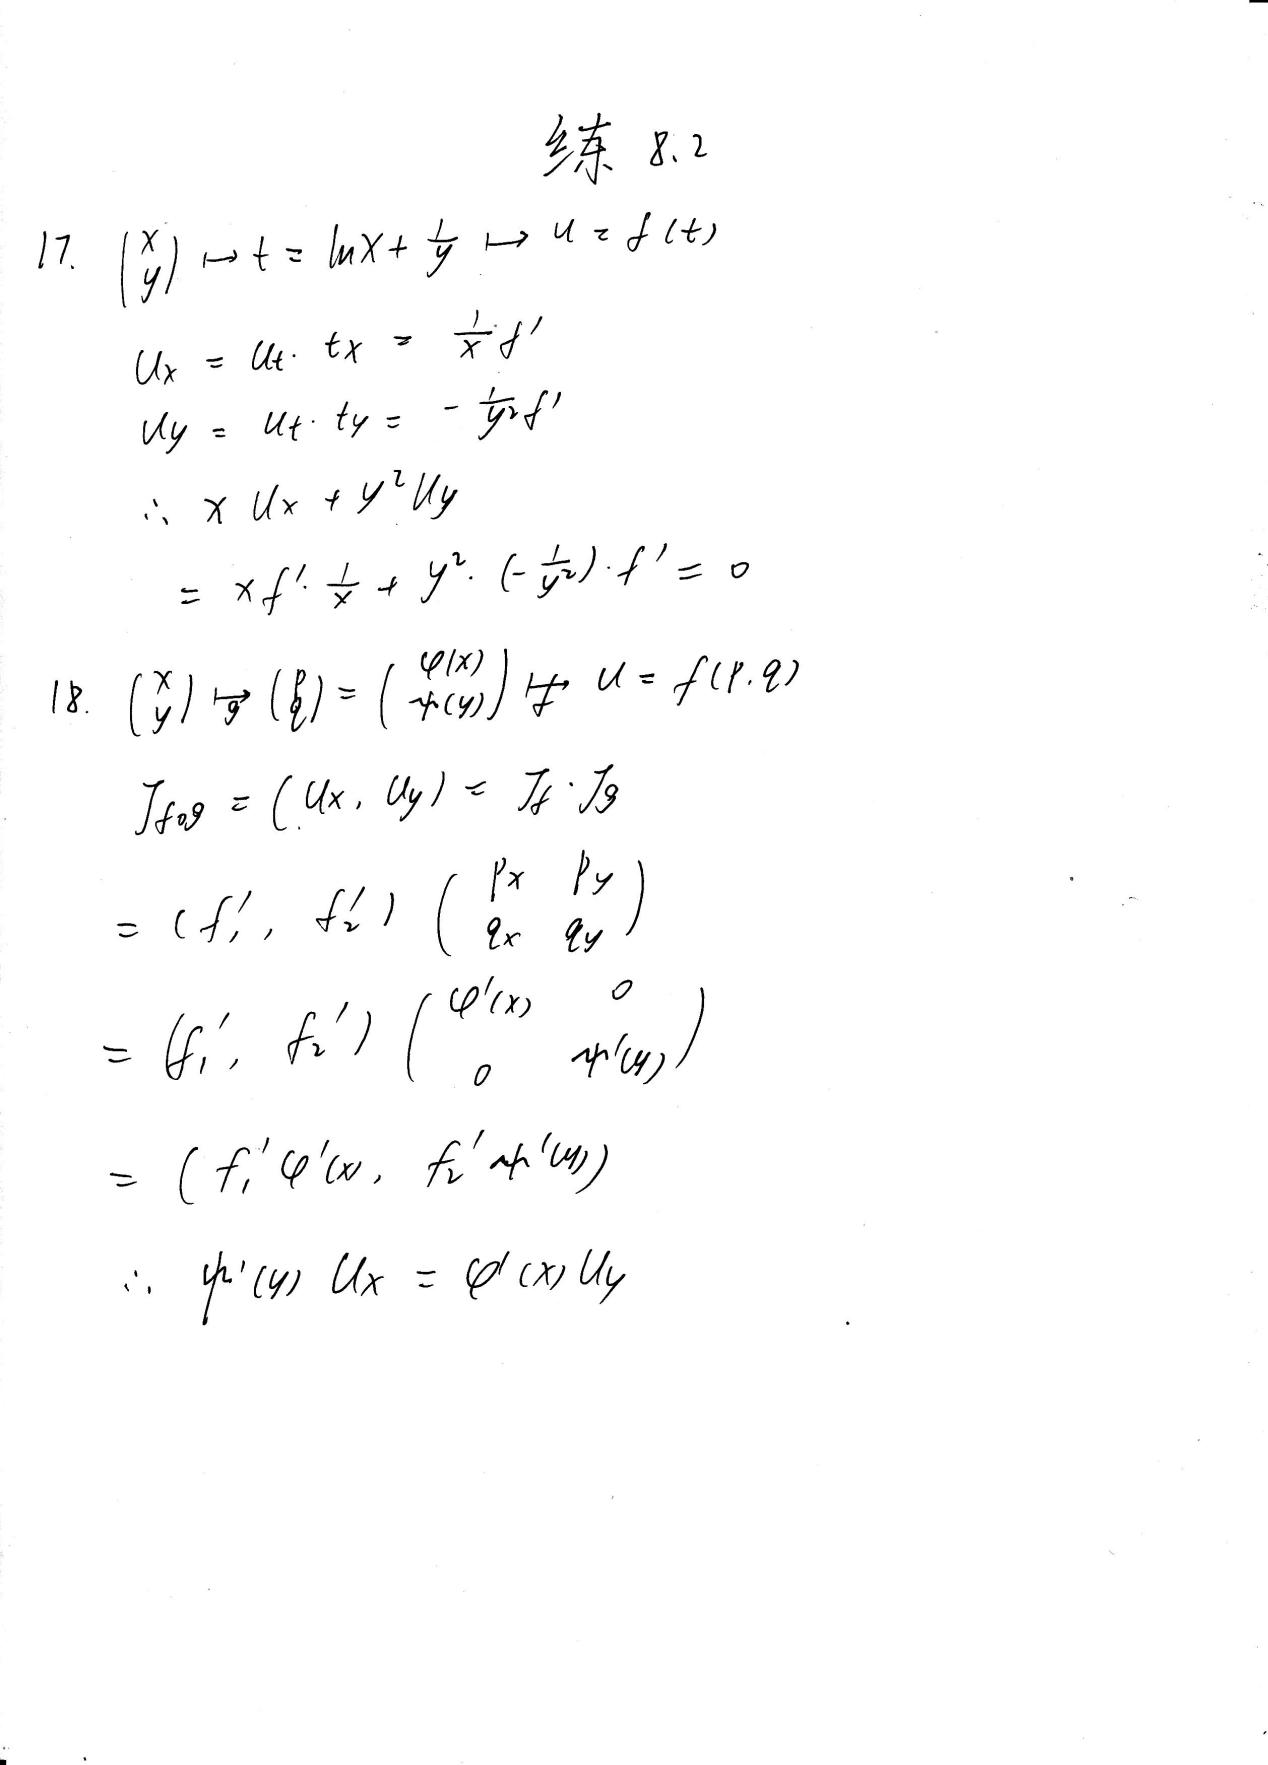 练 8.2
17. (x y) ↦ t = lnx + 1/y ↦ u = f(t)
Ux = Ut · tx = 1/x · f'
Uy = Ut · ty = - 1/y² f'
∴ x Ux + y² Uy
= x f' · 1/x + y² · (- 1/y²) · f' = 0
18. (x y) ↦g (p q) = (φ(x) ψ(y)) ↦f u = f(p, q)
Jf∘g = (Ux, Uy) = Jf · Jg
= (f₁', f₂') (px py qx qy)
= (f₁', f₂') (φ'(x) 0 0 ψ'(y))
= (f₁'φ'(x), f₂'ψ'(y))
∴ ψ'(y) Ux = φ'(x) Uy